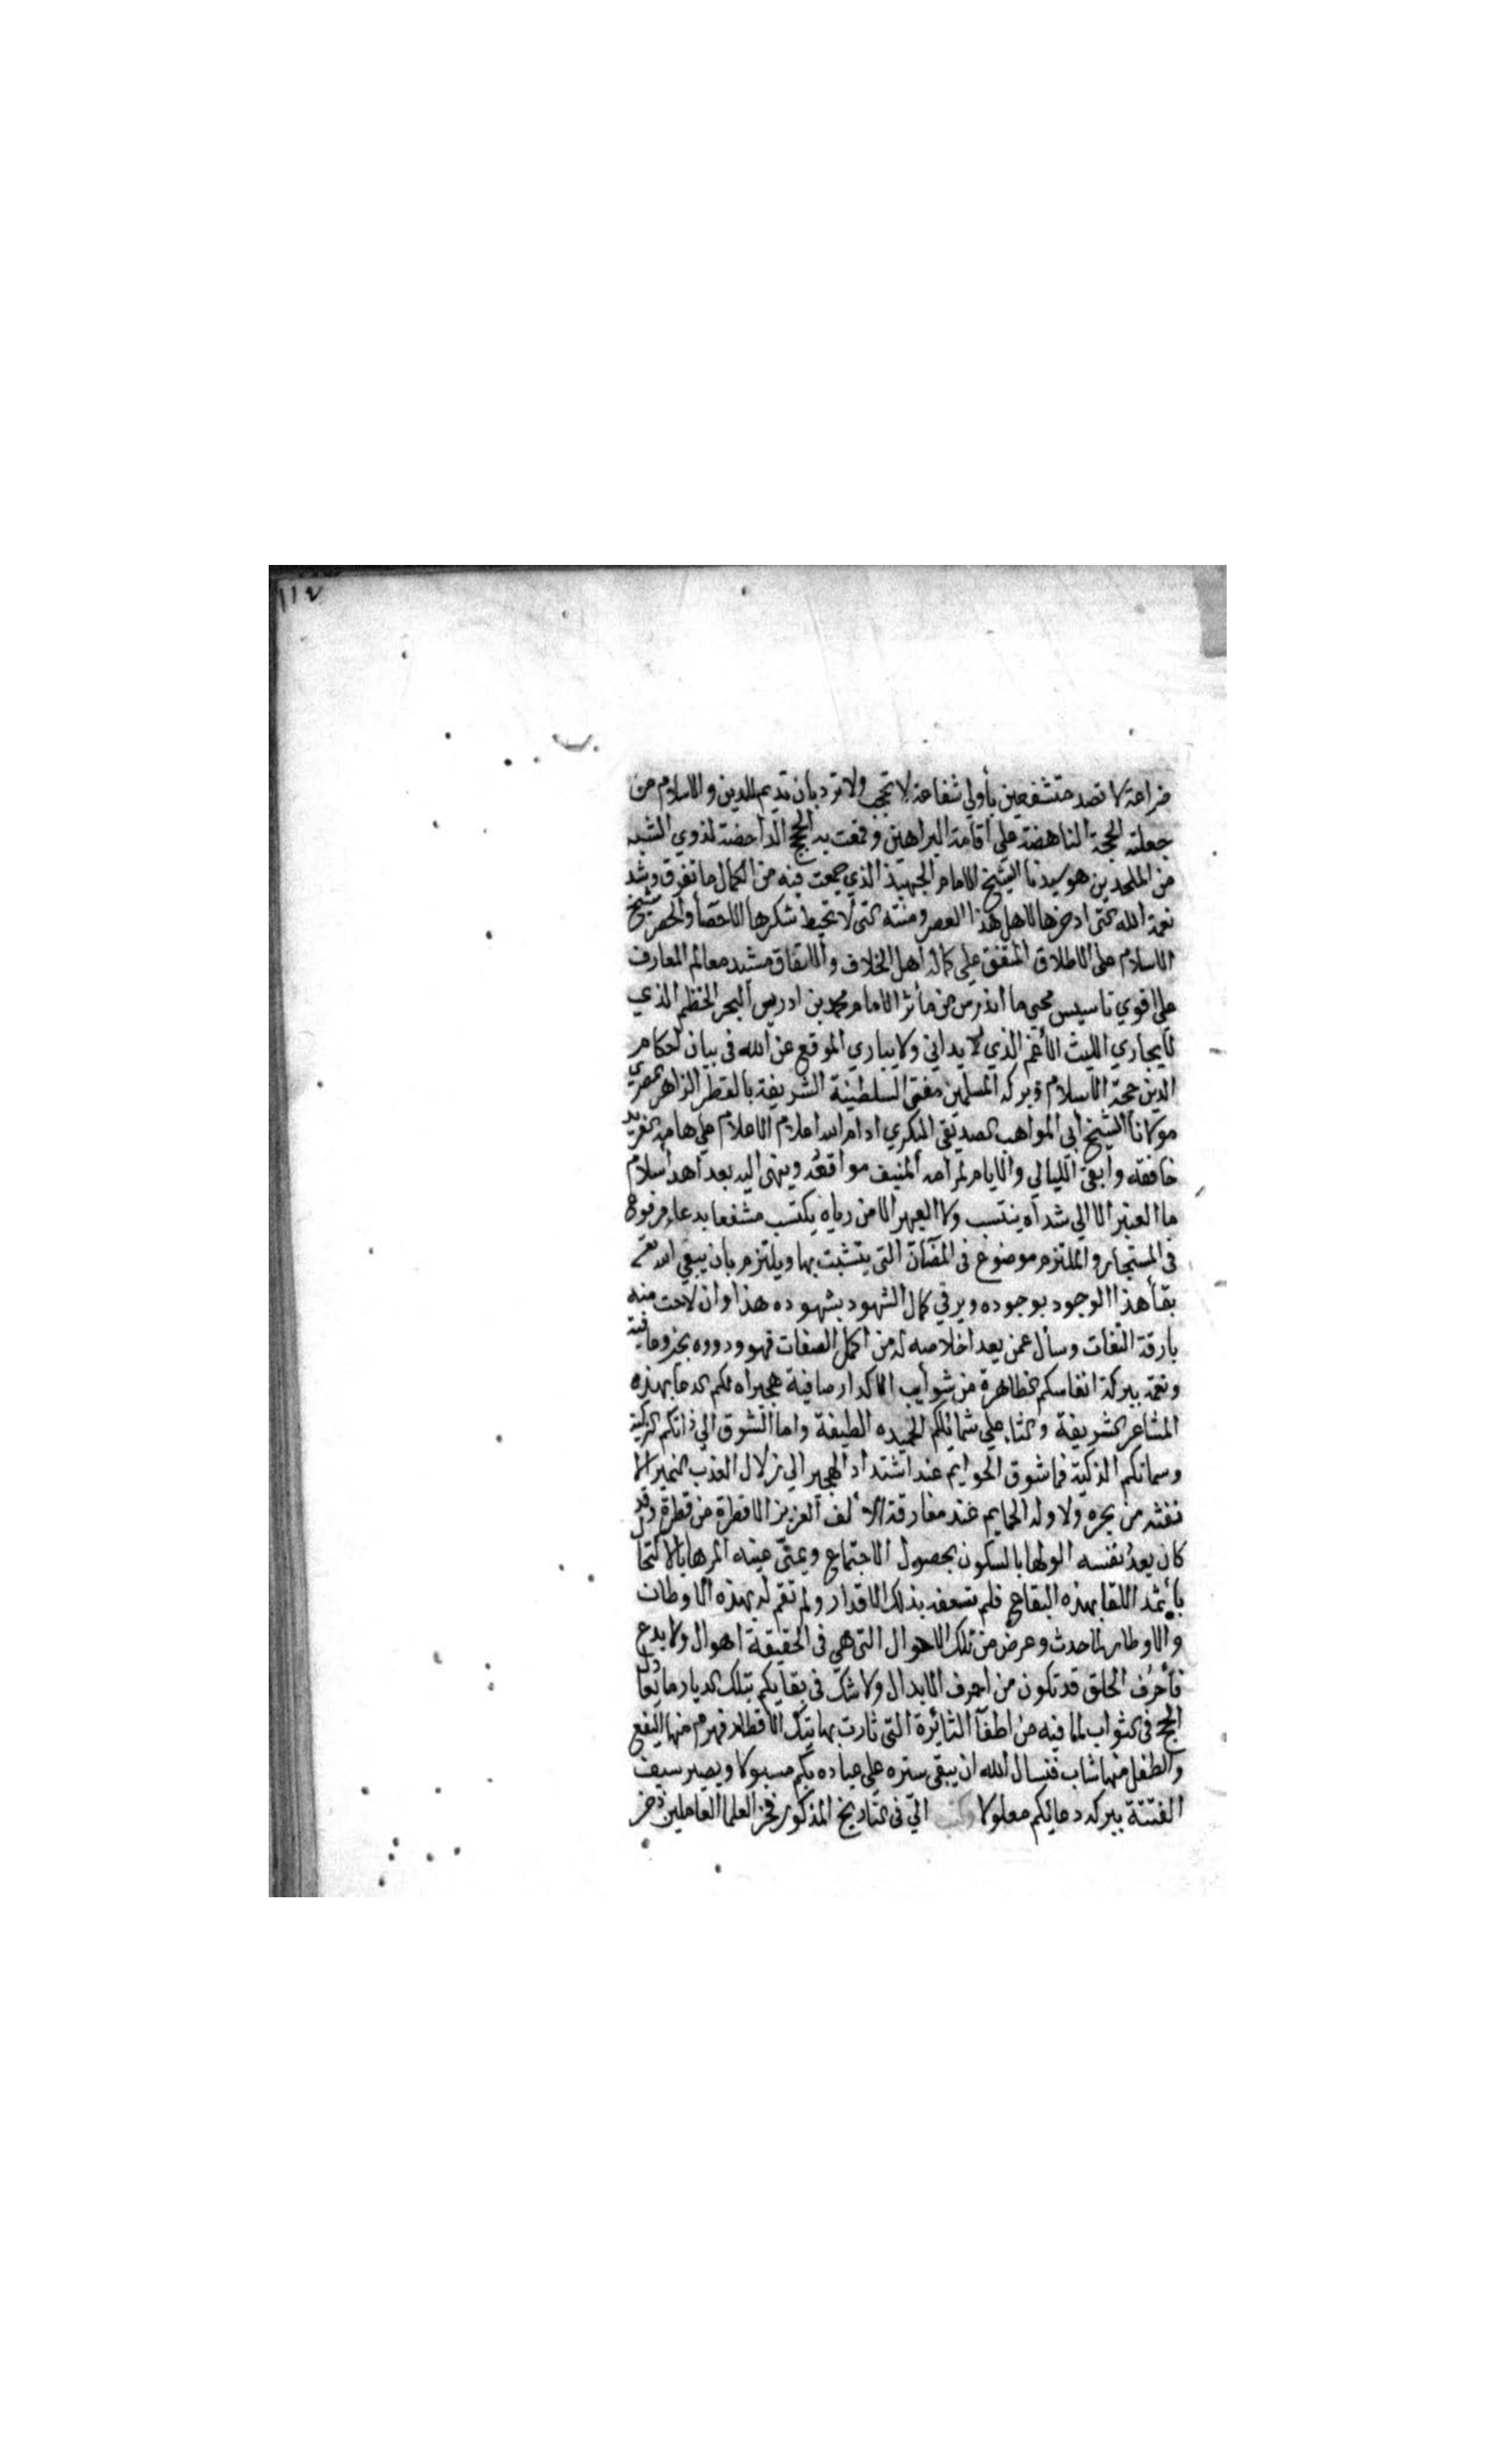 ١١٧
ضراعة لا تصد متشفعين بأولي شفاعة لا تحجب ولا ترد بان تديم للدين والاسلام من
جعلته الحجة الناهضة على اقامة البراهين وقمعت به الحجج الداحضة لذوي الشبه
من الملحدين هو سيدنا الشيخ الامام الجهبذ الذي جمعت فيه من الكمال ما تفرق وشذ
نعمة الله التي ادخرها لاهل هذا العصر ومنته التي لا تحيط شكرها الاحصأ والحصر شيخ
الاسلام على الاطلاق المتفق على كماله اهل الخلاف والاتفاق مشيد معالم المعارف
على اقوي تاسيس محيي ما اندرس من مأثر الامام محمد بن ادريس البحر الخظم الذي
لا يجاري الليث الأغم الذي لا يداني ولا يباري الموقع عن الله في بيان احكام
الدين حجة الاسلام وبركة المسلمين مفتي السلطنة الشريفة بالقطر الزاهر المصري
مولانا الشيخ ابي المواهب الصديقي البكري ادام الله اعلام الاعلام على هامه الفريد
خافقه وابقى الليالي والايام لمرامه المنيف مواقعه وينهى اليه بعد اهدا سلام
ما العنبر الا الي شذاه ينتسب ولا العبهر الا من رياه يكتسب مشفعا بدعاء مرفوع
في المستجار والملتزم موضوع في المضان التي يتشبت بها ويلتزم بان يبقي الله تعالى
بقأ هذا الوجود بوجوده ويرقي كمال الشهود بشهوده هذا وان لاحت منه
بارقة التفات وسأل عمن يعد اخلاصه له من اكمل الصفات فهو وذووه بخير وعافية
ونعمة ببركة انفاسكم الطاهرة من شوايب الاكدار صافية هجيراه لكم الدعا بهذه
المشاعر الشريفة والثناء على شمائلكم الحميده الطيفة واما الشوق الي ذاتكم الزكية
وسماتكم الذكية فما شوق الحوايم عند اشتداد الهجير الي زلال العذب النمير الا
نفثه من بحره ولا وله الحمايم عند مفارقة الألف العزيز الا قطرة من قطره وقد
كان يعد نفسه الولها بالسكون بحصول الاجتماع ويمنى عينه المرها بالاكتحال
بأثمد اللقا بهذه البقاع فلم تسعفه بذلك الاقدار ولم تقم له بهذه الاوطان
والاوطار لما حدث وعرض من تلك الاحوال التي هي في الحقيقة اهوال ولا بدع
فأحرف الحلق قد تكون من احرف الابدال ولا شك في بقأيكم بتلك الديار ما يعادل
الحج في الثواب لما فيه من اطفآ الثائرة التي ثارت بها بتلك الاقطار فهرم منها اليفع
والطفل منها شاب فنسال الله ان يبقي ستره على عباده بكم مسبولا ويصير سيف
الفتنة ببركة دعائكم مغلولا وكتب الي في التاريخ المذكور فخر العلما العاملين ذخر